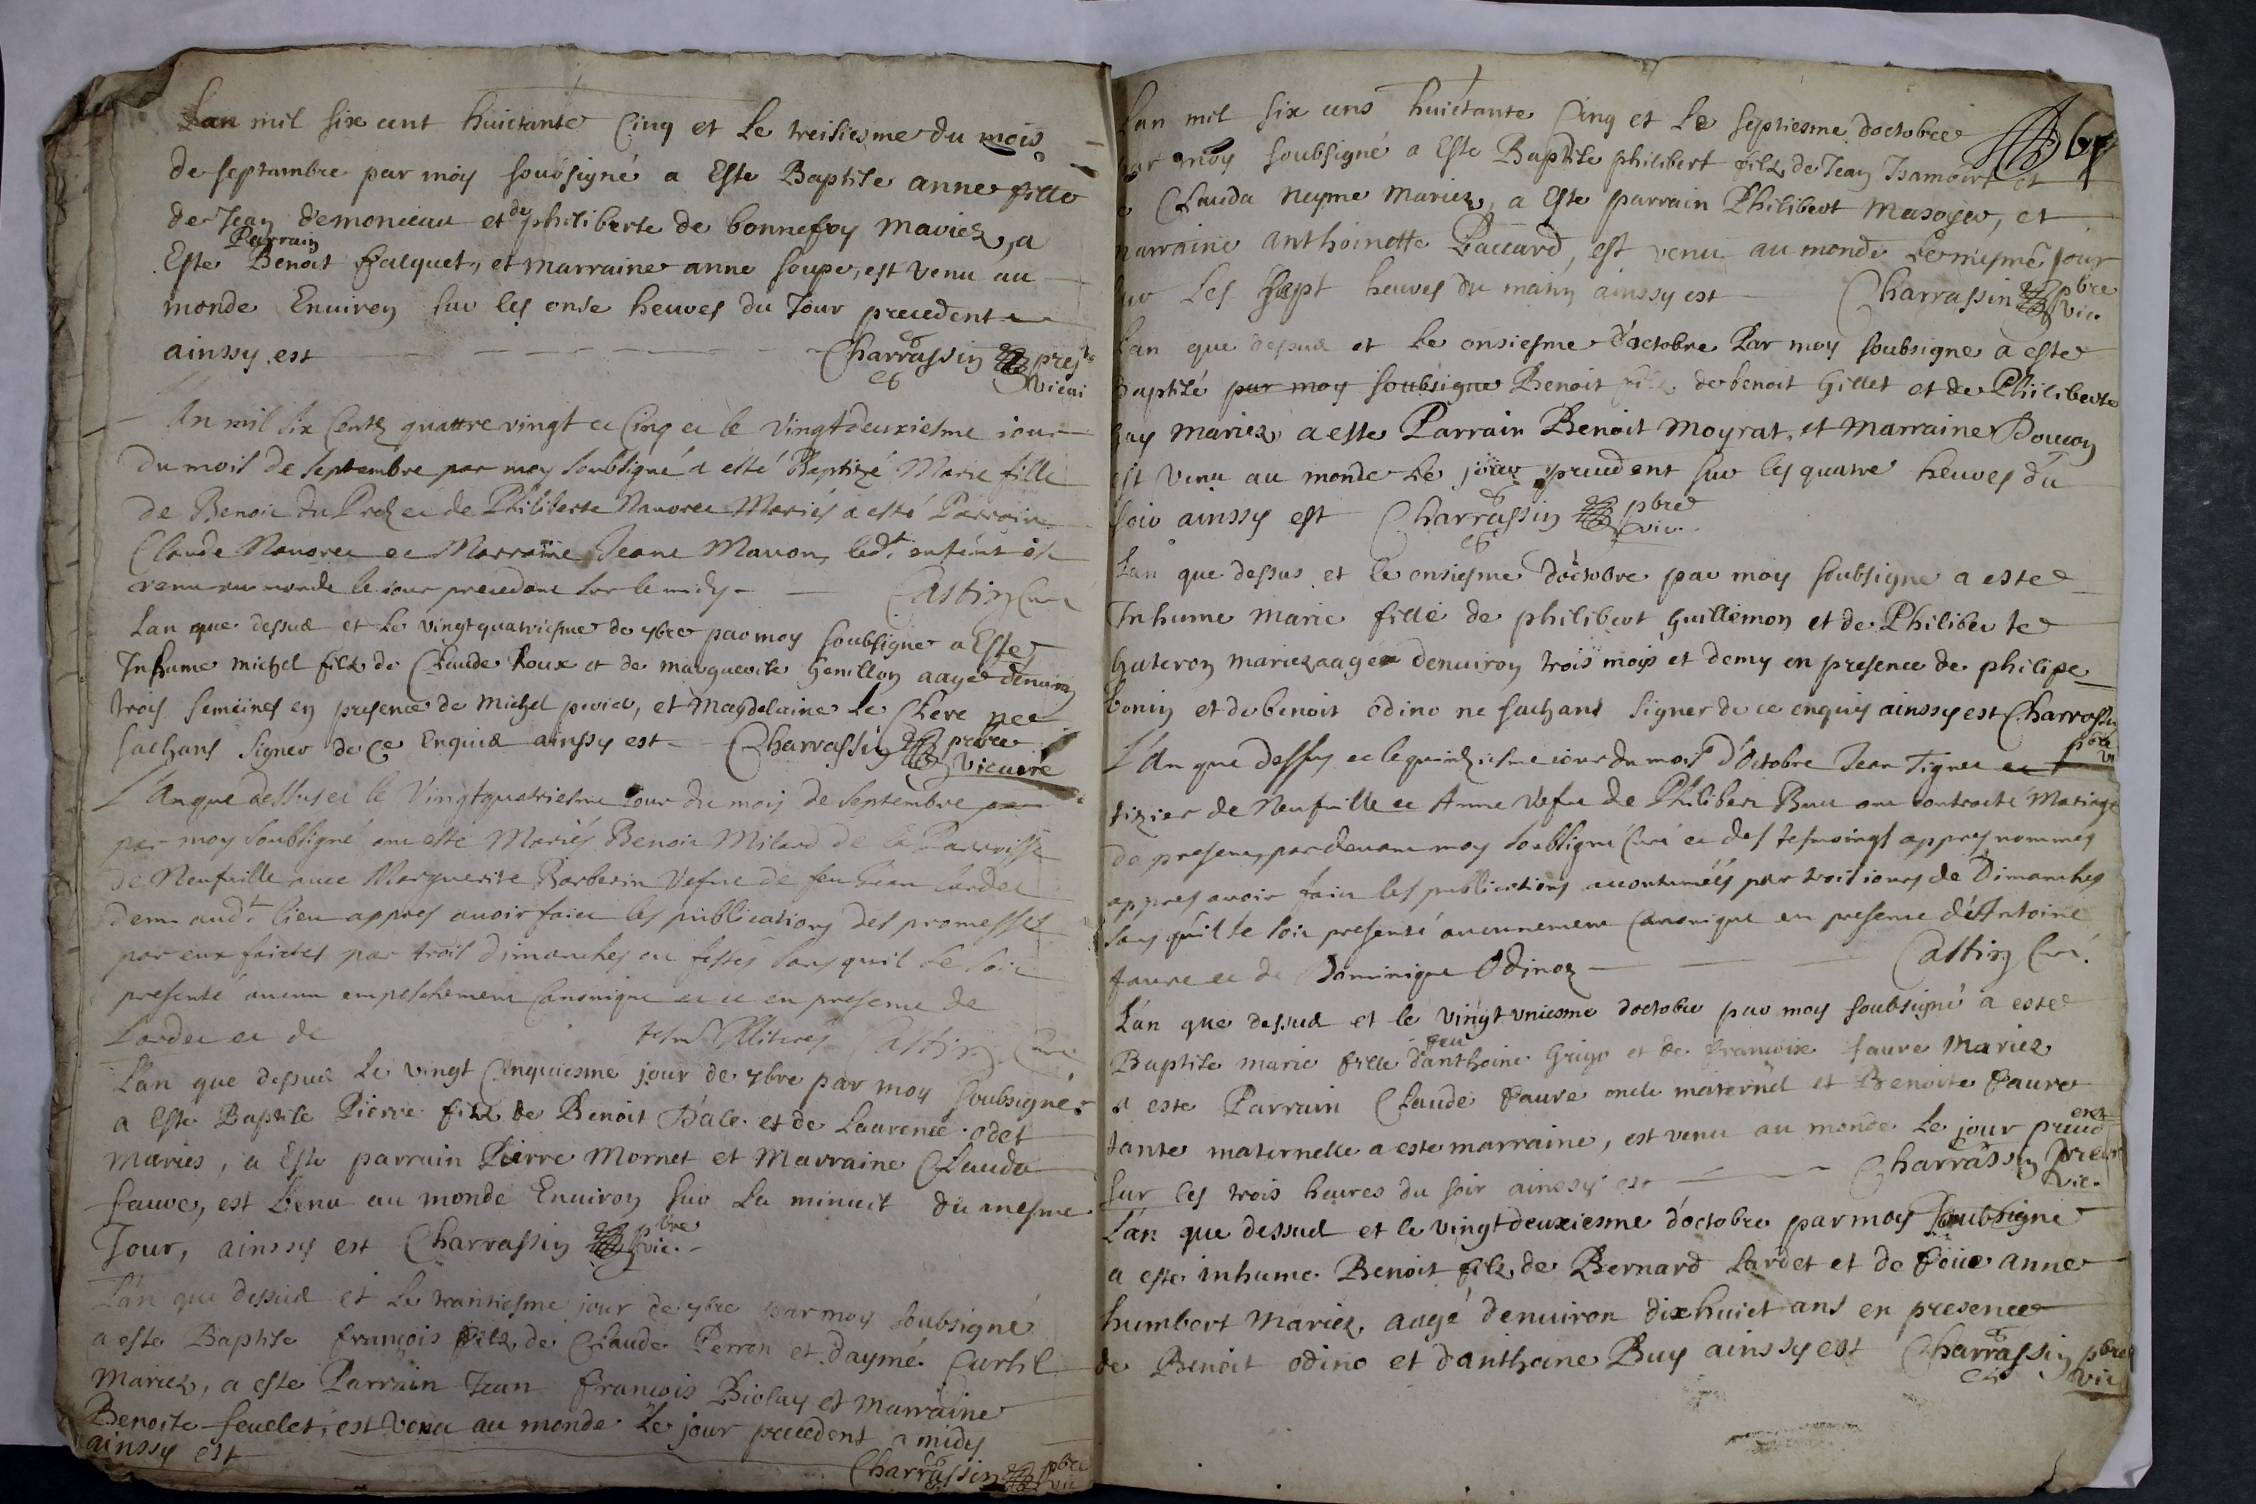 Lan mil six cent huictante Cinq et Le treisiesme du mois
de septambre par moy soubsigné a Este Baptise anne fille
de Jean demonceau et de philiberte de bonnefoy mariez, a
Este Parrain Benoit Falquet, et marraine anne soupe, est venu au
monde Environ sur les onse heures du Jour precedent
ainssy est Charrassin
vicai
An mil six Centz quattre vingt et Cinq et le vingtdeuxiesme iour
du mois de septembre par moy soubsigné a esté Baptizé Marie fille
de Benoit du Prez et de Philiberte Mariés a esté Parrain
Claude et Marraine Jeane Mavon, ledt enfent est
venu au monde le iour precedent sur le midy Castin Curé
Lan que dessus et Le vingtquatriesme de 7bre par moy soubsigne a Este
Inhume michel filz de Claude Roux et de marguerite Genillon aage denviron
trois semeines en presence de Michel perier, et Magdelaine Le Clere ne
sachans signer de Ce Enquis ainssy est Charrassin pbre
vicaire
L'An que dessus et le Vingtquatriesme Jour du mois de Septembre
par moy soubsigné ont esté Mariés Benoit Milard de la Parroisse
de Neufville avec Marguerite Barberin Vefve de feu Jean Lardet
dem. audt lieu appres avoir faict les publications des promesses
par eux faictes par trois dimanches ou festes sans quil se soit
presenté aucun empeschement Canonique et ce en presence de
Lardet et de tesm. Illiterés Castin Curé
L'an que dessus Le vingt Cinquiesme jour de 7bre par moy soubsigné
a Este Baptise Pierre filz de Benoit Dale et de Laurence odet
mariés, a Este parrain Pierre Mornet et Marraine Clauda
faure, est Venu au monde Environ sur La minuit du mesme
Jour, ainssy est Charrassin pbre
vic.
L'an que dessus et Le trantiesme jour de 7bre par moy soubsigné
a este Baptise françois filz de Claude Perron et daymé Curtil
Mariez, a este Parrain Jean françois Biolay et marraine
Benoite feuelet, est Venu au monde Le jour precedent a midy
ainssy est Charrassin pbre
vic
Lan mil six cens huictante Cinq et Le septiesme doctobre
par moy soubsigné a Este Baptise philibert filz de Jean Isambert et
Clauda neyme mariez, a Este parrain Philibert masoyer, et
marraine anthoinette Paccard, est venu au monde Le mesme jour
sur Les sept heures du matin ainssy est Charrassin pbre
vic.
Lan que dessus et Le onsiesme d'octobre Par moy soubsigne a este
baptisé par moy soubsigne Benoit filz de benoit Gillet et de Philiberte
mariez a este Parrain Benoit Moyrat, et Marraine
est Venu au monde Le jour precedent sur les quatre heures du
soir ainssy est Charrassin pbre
vic.
L'an que dessus et le onsiesme d'octobre par moy soubsigne a este
Inhume marie fille de philibert guillemon et de Philiberte
guteron mariez aagee denviron trois mois et demy en presence de philipe
bonin et de benoit odino ne sachans signer de ce enquis ainssy est Charrassin
pbre
vi
L'An que dessus et le quinziesme iour du mois d'Octobre Jean Tignet et
tixier de Neufville et Anne Vefve de Philibert Buet ont contracté Mariage
de presens, pardevant moy soubsigné Curé et des tesmoings appres nommés
appres avoir faict les publications accoutumées par trois iours de Dimanches
sans qu'il se soit presenté aucunement Canonique en presence d'Antoine
faure et de Dominique Odinoz Castin Curé.
L'an que dessus et le vingtvniesme doctobre par moy soubsigné a este
Baptise marie fille feu d'anthoine Griyo et de francoise faure Mariez
a este Parrain Claude Faure oncle maternel et Benoite Faure
tante maternelle a este marraine, est venu au monde Le jour preced ent
sur les trois heures du soir ainssy est Charrassin
vic.
L'an que dessus et le vingtdeuxiesme d'octobre par moy soubsigné
a este inhume Benoit filz de Bernard Lardet et de feüe anne
humbert Mariez, aagé denviron dixhuict ans en presence
de Benoit odino et danthoine Buy ainssy est Charrassin pbre
vic